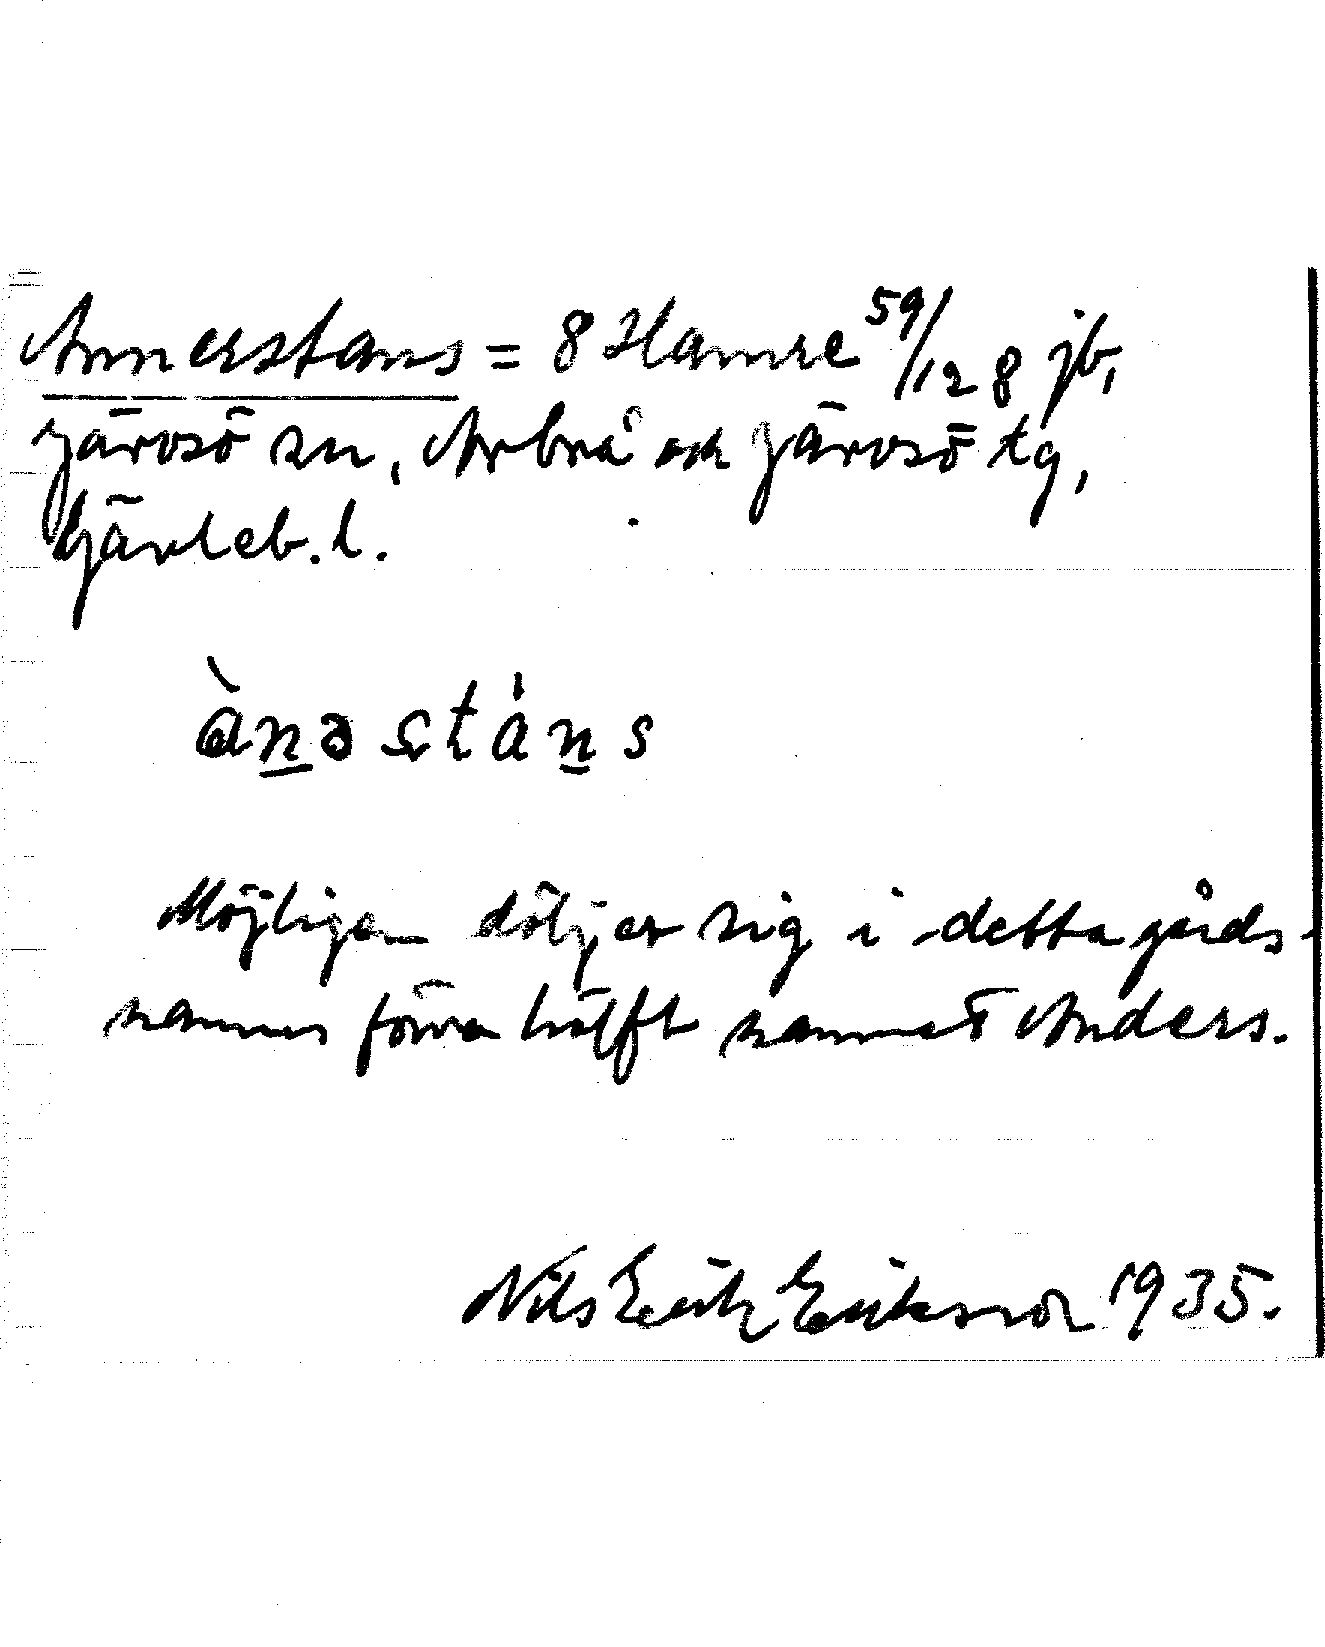 Annerstans = 8 Hamre 59/128 jb,
Järvsö sn, Arbrå och Järvsö tg,
Gävleb. l.
ànəstáns
Möjligen döljer sig i detta gårds-
namns förra hälft namnet Anders.
Nils Erik Eriksson 1935.